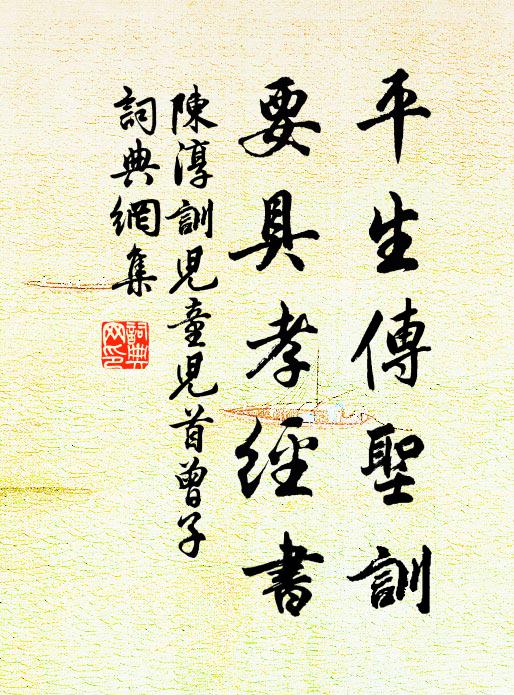 平生傳聖訓
要具孝經書
陳淳訓児童児首曾子
詞典網集
詞典
网印